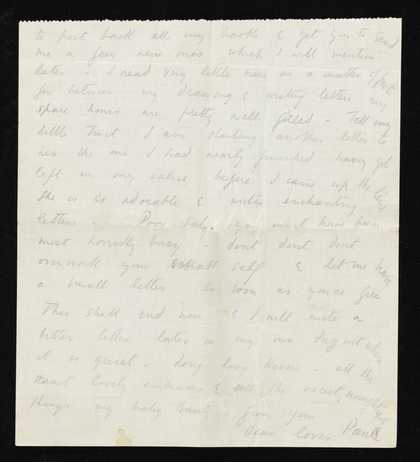 to post back all my books & get you to send
me a few new ones which I will mention
later - I read very little now as a matter of fact
for between my drawing & writing letters my
spare hours are pretty well filled - Tell my
little I am starting another letter to
her the one I had nearly finished having got
left in my valise before I came up the line
She is so adorable & writes enchanting
letters - Poor you must have been
most horridly busy - dont dont dont
overwork your small self & let me have
a small letter as soon as you're free
This shall end now & I will write a
better letter later in my own dug out when
it is quiet - long love - all the
most lovely & all the
things my from your
dear lover Paul